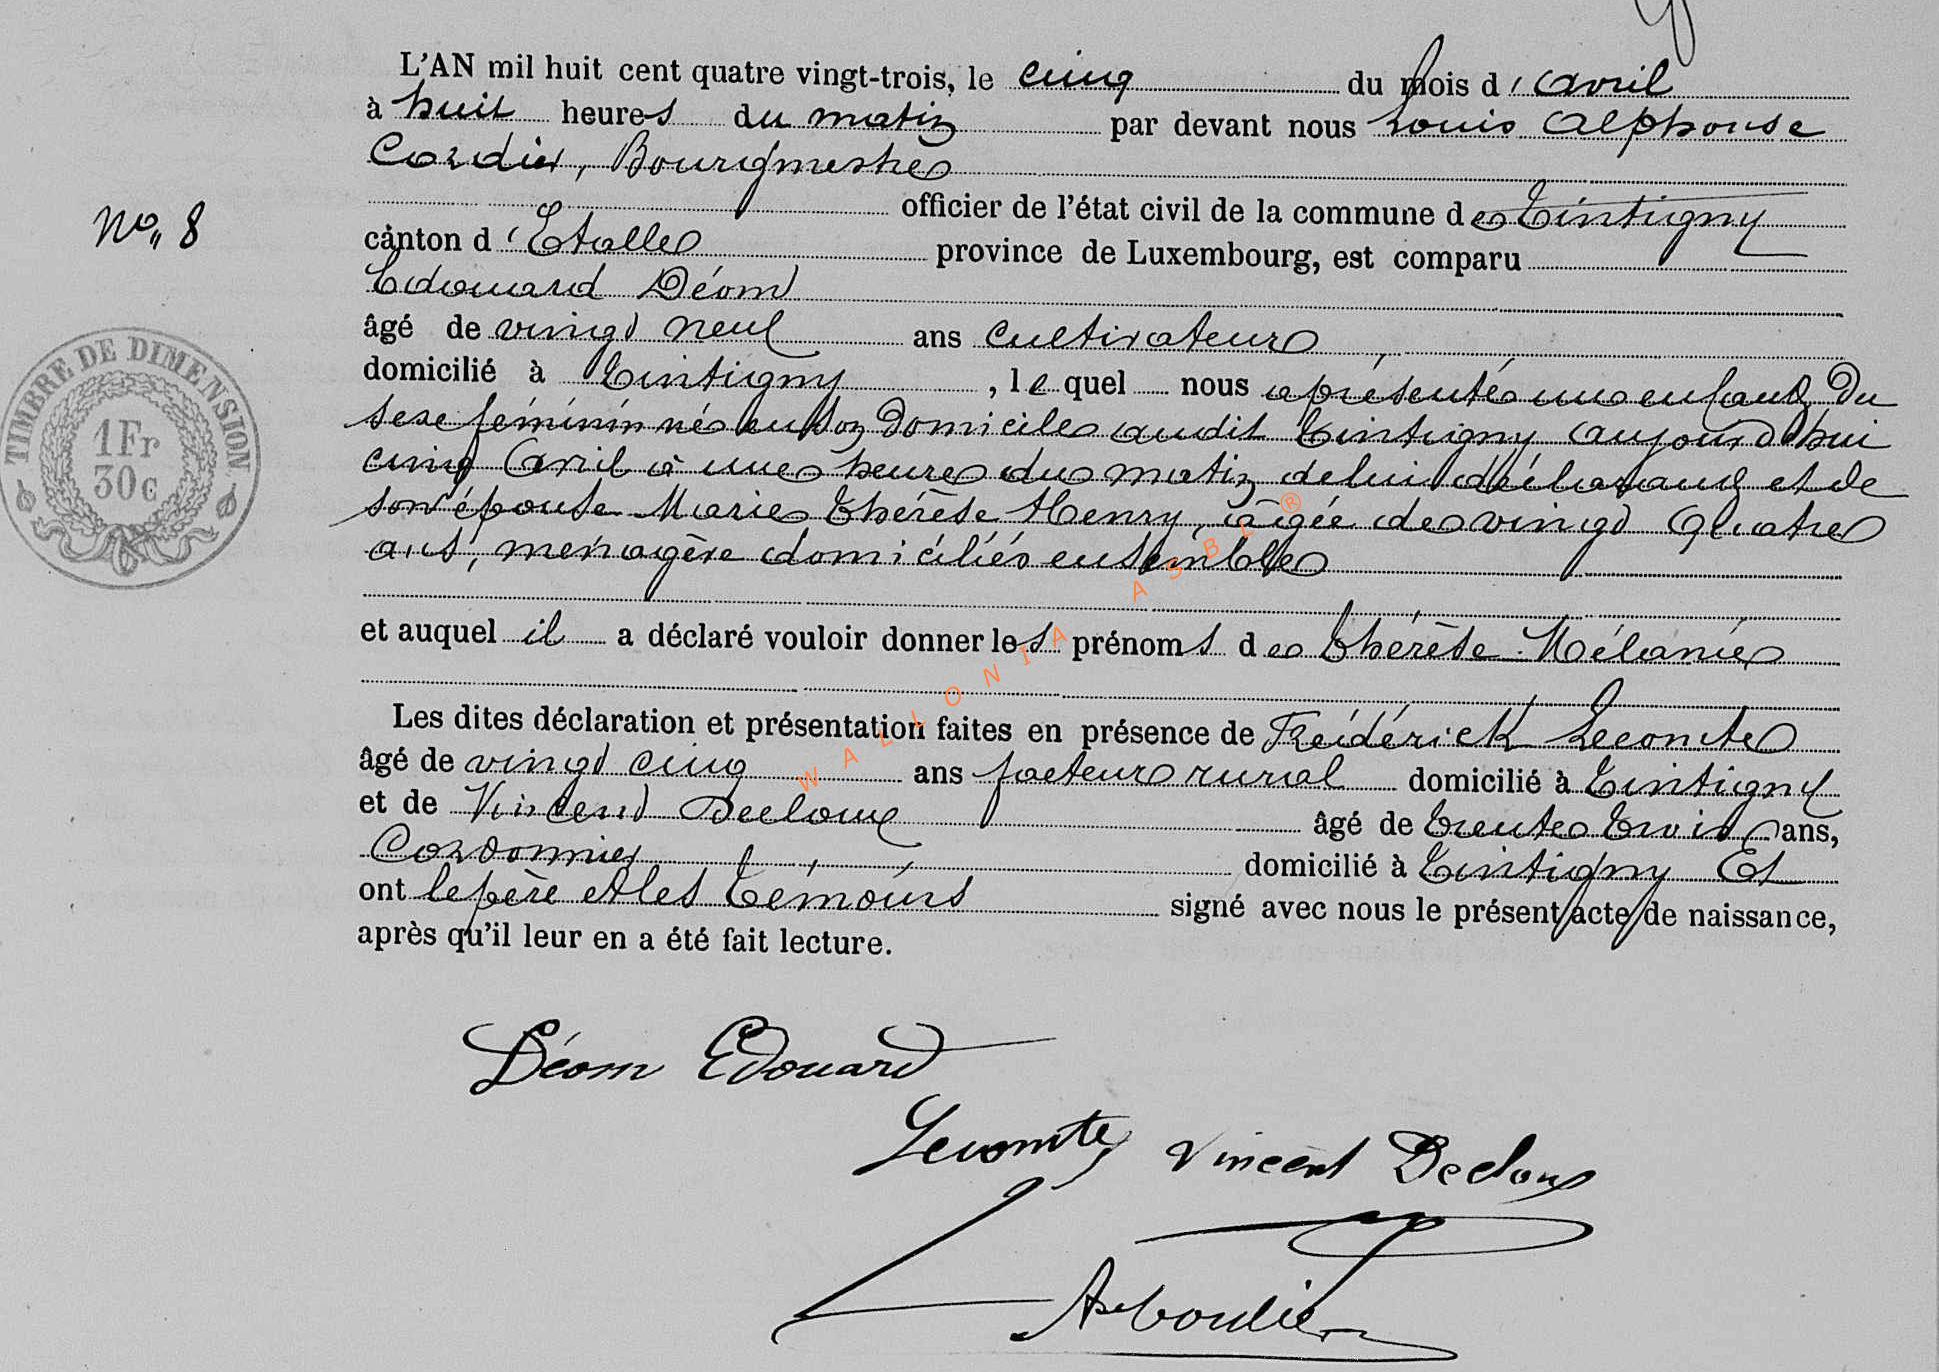 L'AN mil huit cent quatre vingt-trois, le cinq du mois d'avril
à huit heures du matin par devant nous Louis Alphonse
Cordier, Bourgmestre
officier de l'état civil de la commune de Tintigny
N° 8
canton d'Etalle province de Luxembourg, est comparu
Edouard Déom
âgé de vingt neuf ans cultivateur,
domicilié à Tintigny, lequel nous a présenté un enfant du
sexe féminin né en son domicile audit Tintigny aujourd'hui
cinq avril à une heure du matin de lui déclarant et de
son épouse Marie Thérèse Henry, âgée de vingt quatre
ans, ménagère domiciliés ensemble
et auquel il a déclaré vouloir donner les prénoms de Thérèse Mélanie
Les dites déclaration et présentation faites en présence de Frédérick Lecomte
âgé de vingt cinq ans facteur rural domicilié à Tintigny
et de Vincend Decloux âgé de trente trois ans,
Cordonnier domicilié à Tintigny Et
ont le père et les témoins signé avec nous le présent acte de naissance,
après qu'il leur en a été fait lecture.
TIMBRE DE DIMENSION
1Fr
30c
WALLONIA ASBL ®
Déom Edouard
Lecomte Vincent Decloux